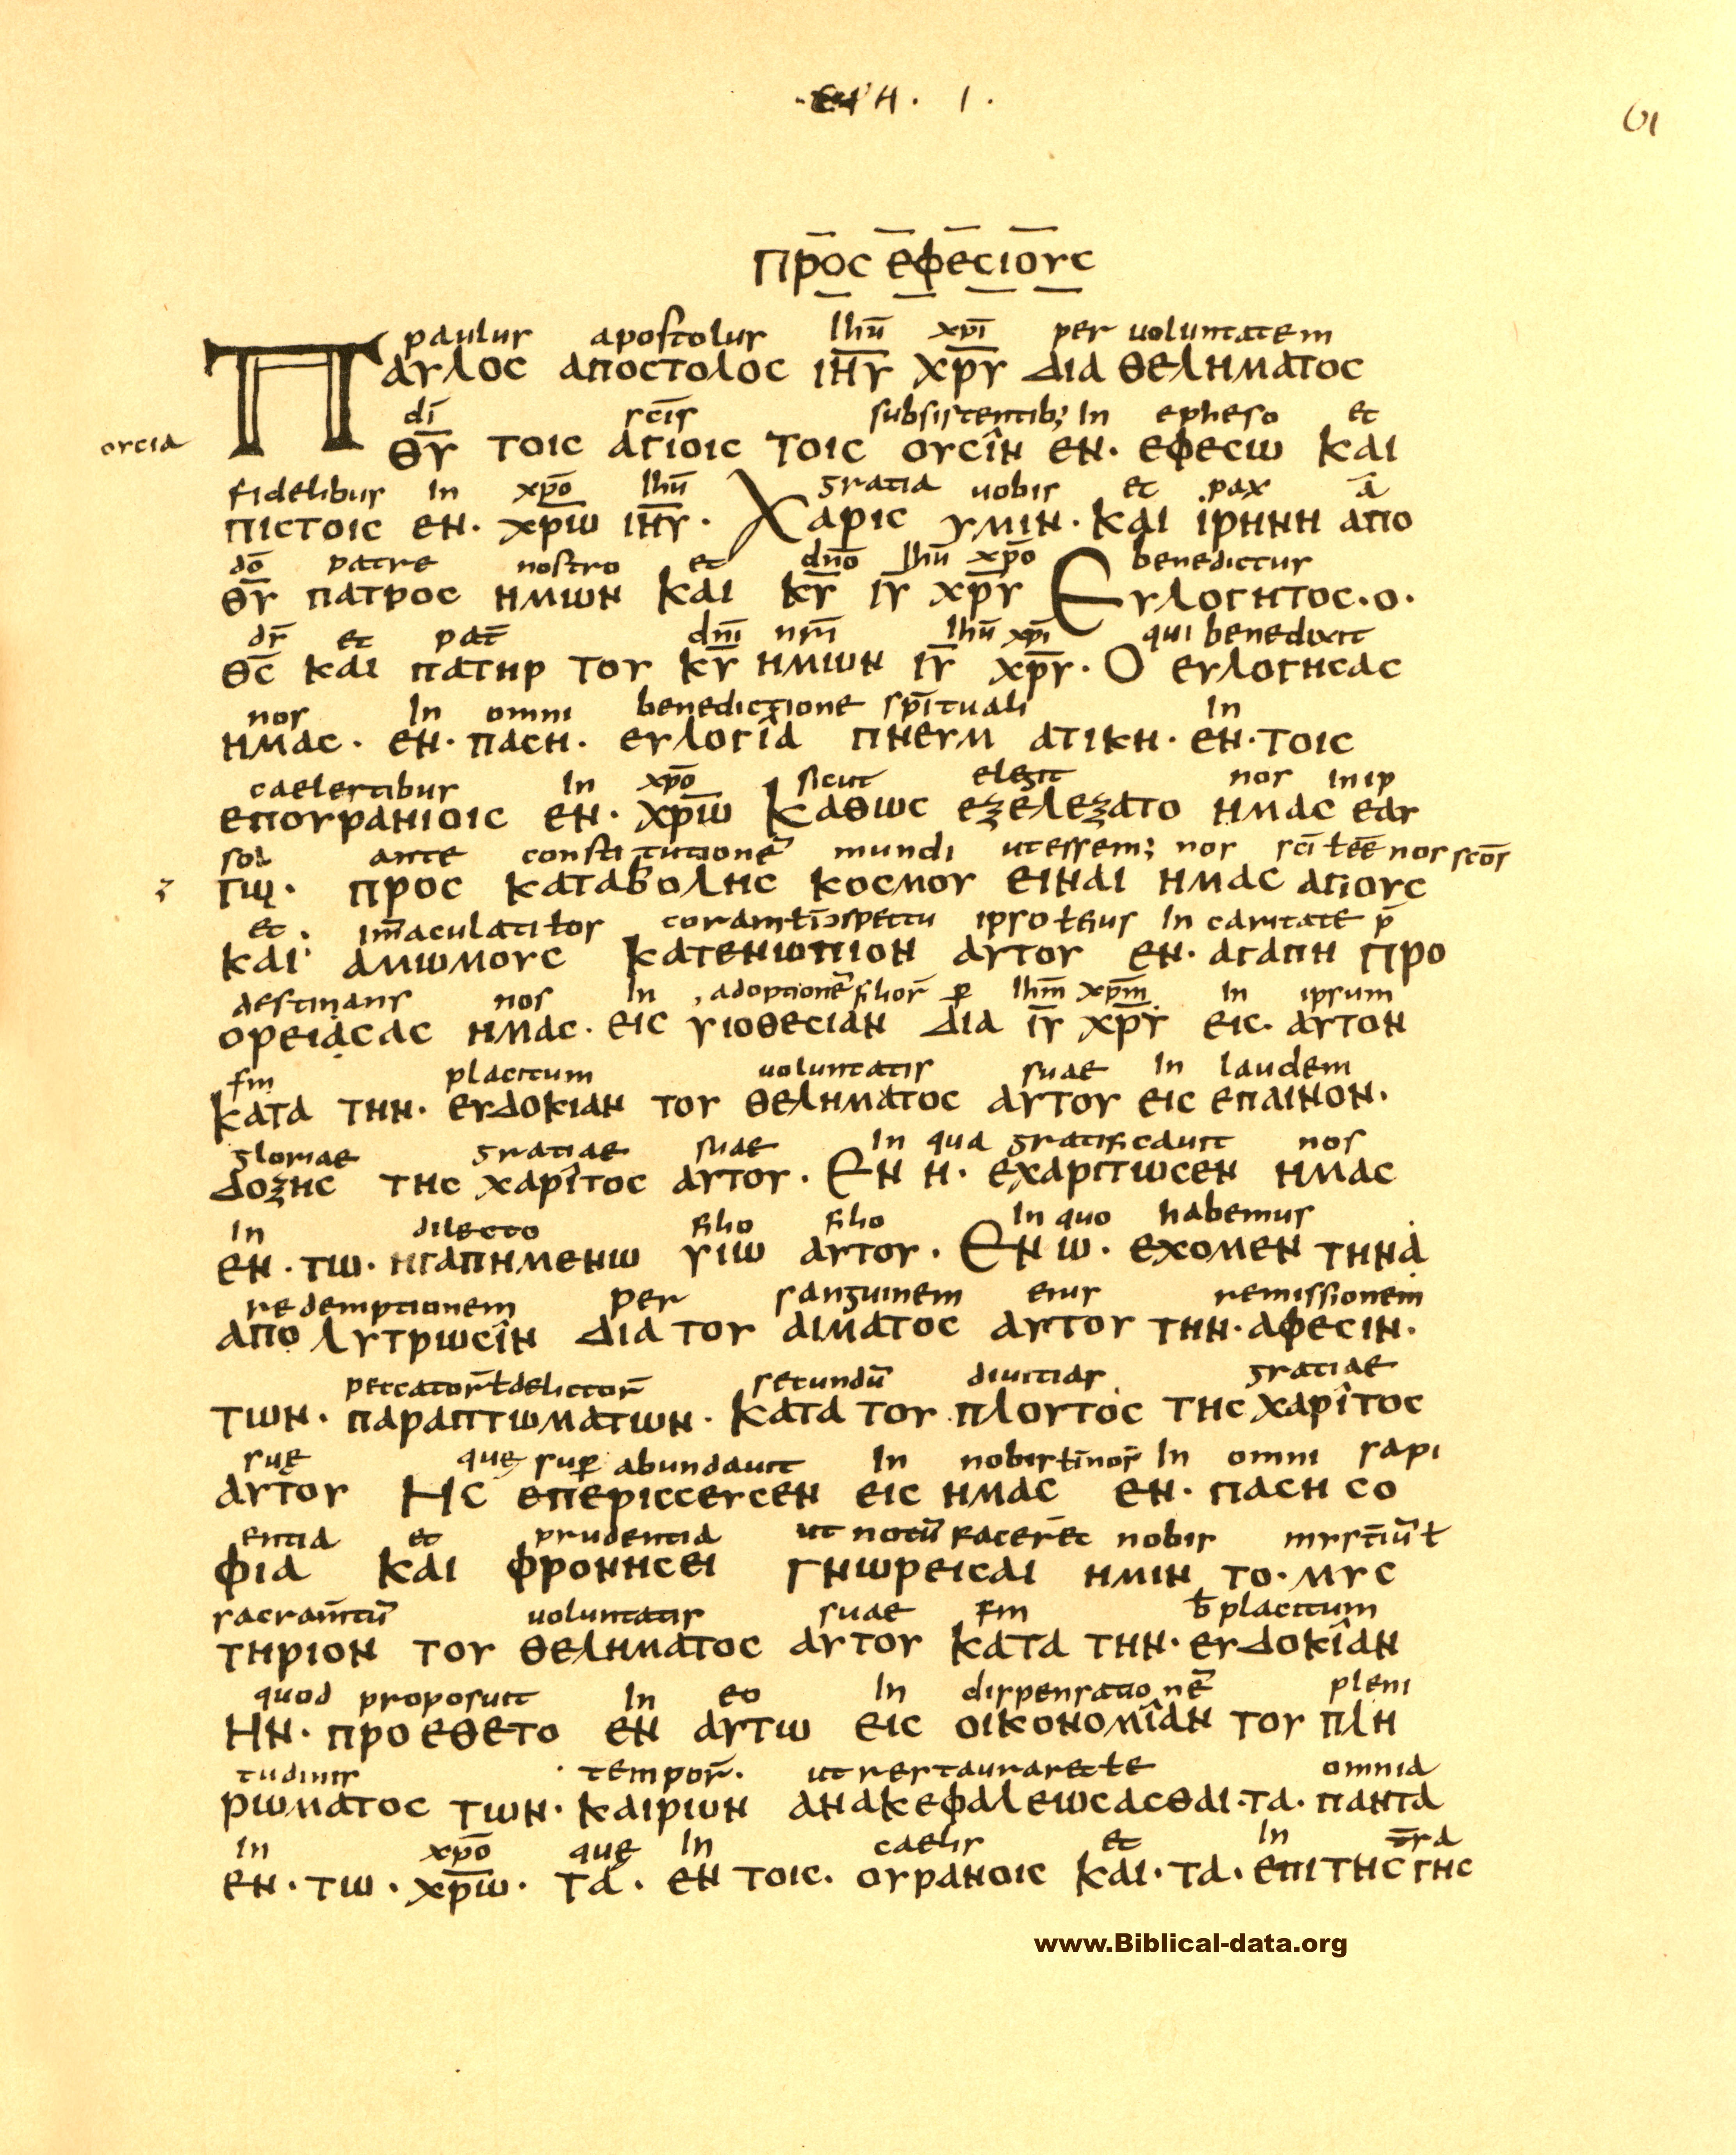 ΕΦΗ. 1.
61
ΠΡΟΣ ΕΦΕΣΙΟΥΣ
paulus apostolus Ihū xp̄i per uoluntatem
ΠΑΥΛΟΣ ΑΠΟΣΤΟΛΟΣ ΙΗ̅Υ̅ ΧΡ̅Υ̅ ΔΙΑ ΘΕΛΗΜΑΤΟΣ
dī sc̄is subsistentib; In epheso et
ουσια
Θ̅Υ̅ ΤΟΙΣ ΑΓΙΟΙΣ ΤΟΙΣ ΟΥΣΙΝ ΕΝ· ΕΦΕΣΩ ΚΑΙ
fidelibus In xp̄o Ihū gratia uobis et pax ā
ΠΙΣΤΟΙΣ ΕΝ· ΧΡ̅Ω̅ ΙΗ̅Υ̅· ΧΑΡΙΣ ΥΜΙΝ· ΚΑΙ ΙΡΗΝΗ ΑΠΟ
dō patre nostro et dn̄o Ihū xp̄o benedictus
Θ̅Υ̅ ΠΑΤΡΟΣ ΗΜΩΝ ΚΑΙ Κ̅Υ̅ Ι̅Υ̅ ΧΡ̅Υ̅ ΕΥΛΟΓΗΤΟΣ·Ο·
ds̄ et pat̄ dn̄i nr̄i Ihū xp̄i qui benedixit
Θ̅Σ̅ ΚΑΙ ΠΑΤΗΡ ΤΟΥ Κ̅Υ̅ ΗΜΩΝ Ι̅Υ̅ ΧΡ̅Υ̅· Ο ΕΥΛΟΓΗΣΑΣ
nos In omni benedictione sp̄ituali In
ΗΜΑΣ· ΕΝ· ΠΑΣΗ· ΕΥΛΟΓΙΑ ΠΝΕΥΜ ΑΤΙΚΗ· ΕΝ·ΤΟΙΣ
caelestibus In xp̄o sicut elegit nos In ip
ΕΠΟΥΡΑΝΙΟΙΣ ΕΝ· ΧΡ̅Ω̅ ΚΑΘΩΣ ΕΞΕΛΕΞΑΤΟ ΗΜΑΣ ΕΑΥ
so ante constitutionē mundi utessem; nos sc̄i ł eē nos scōs
ΤΩ· ΠΡΟΣ ΚΑΤΑΒΟΛΗΣ ΚΟΣΜΟΥ ΕΙΝΑΙ ΗΜΑΣ ΑΓΙΟΥΣ
et im̄aculati ł os coram ł īɔspectu ipso ł eius In caritate p̄
ΚΑΙ ΑΜΩΜΟΥΣ ΚΑΤΕΝΩΠΙΟΝ ΑΥΤΟΥ ΕΝ· ΑΓΑΠΗ ΠΡΟ
destinans nos In adoptionē filior̄ ꝑ Ihm̄ xpm̄ In ipsum
ΟΡΕΙΑΣΑΣ ΗΜΑΣ· ΕΙΣ ΥΙΟΘΕΣΙΑΝ ΔΙΑ Ι̅Υ̅ ΧΡ̅Υ̅ ΕΙΣ· ΑΥΤΟΝ
sm placitum uoluntatis suae In laudem
ΚΑΤΑ ΤΗΝ· ΕΥΔΟΚΙΑΝ ΤΟΥ ΘΕΛΗΜΑΤΟΣ ΑΥΤΟΥ ΕΙΣ ΕΠΑΙΝΟΝ·
gloriae gratiae suae In qua gratificauit nos
ΔΟΞΗΣ ΤΗΣ ΧΑΡΙΤΟΣ ΑΥΤΟΥ· ΕΝ Η· ΕΧΑΡΙΤΩΣΕΝ ΗΜΑΣ
In dilecto filio filio In quo habemus
ΕΝ·ΤΩ· ΗΓΑΠΗΜΕΝΩ ΥΙΩ ΑΥΤΟΥ· ΕΝ Ω· ΕΧΟΜΕΝ ΤΗΝΑ
redemptionem per sanguinem eius remissionem
ΑΠΟΛΥΤΡΩΣΙΝ ΔΙΑ ΤΟΥ ΑΙΜΑΤΟΣ ΑΥΤΟΥ ΤΗΝ·ΑΦΕΣΙΝ·
peccator̄ ł delictor̄ secundū diuitias gratiae
ΤΩΝ· ΠΑΡΑΠΤΩΜΑΤΩΝ· ΚΑΤΑ ΤΟΥ ΠΛΟΥΤΟΣ ΤΗΣ ΧΑΡΙΤΟΣ
suę quę suꝑ abundauit In nobis ł īnos In omni sapi
ΑΥΤΟΥ ΗΣ ΕΠΕΡΙΣΣΕΥΣΕΝ ΕΙΣ ΗΜΑΣ ΕΝ· ΠΑΣΗ ΣΟ
entia et prudentia ut notū faceret nobis mysteriū ł
ΦΙΑ ΚΑΙ ΦΡΟΝΗΣΕΙ ΓΝΩΡΕΙΣΑΙ ΗΜΙΝ ΤΟ·ΜΥΣ
sacram̄tū uoluntatis suae sm b̄ placitum
ΤΗΡΙΟΝ ΤΟΥ ΘΕΛΗΜΑΤΟΣ ΑΥΤΟΥ ΚΑΤΑ ΤΗΝ· ΕΥΔΟΚΙΑΝ
quod proposuit In eo In dispensationē pleni
ΗΝ· ΠΡΟΕΘΕΤΟ ΕΝ ΑΥΤΩ ΕΙΣ ΟΙΚΟΝΟΜΙΑΝ ΤΟΥ ΠΛΗ
tudinis tempor̄· ut restauraret ł e omnia
ΡΩΜΑΤΟΣ ΤΩΝ· ΚΑΙΡΙΩΝ ΑΝΑΚΕΦΑΛΕΩΣΑΣΘΑΙ·ΤΑ· ΠΑΝΤΑ
In xp̄o quę In caelis et In t̄ra
ΕΝ·ΤΩ· ΧΡ̅Ω̅· ΤΑ· ΕΝ ΤΟΙΣ· ΟΥΡΑΝΟΙΣ ΚΑΙ·ΤΑ·ΕΠΙ ΤΗΣ ΓΗΣ
www.Biblical-data.org